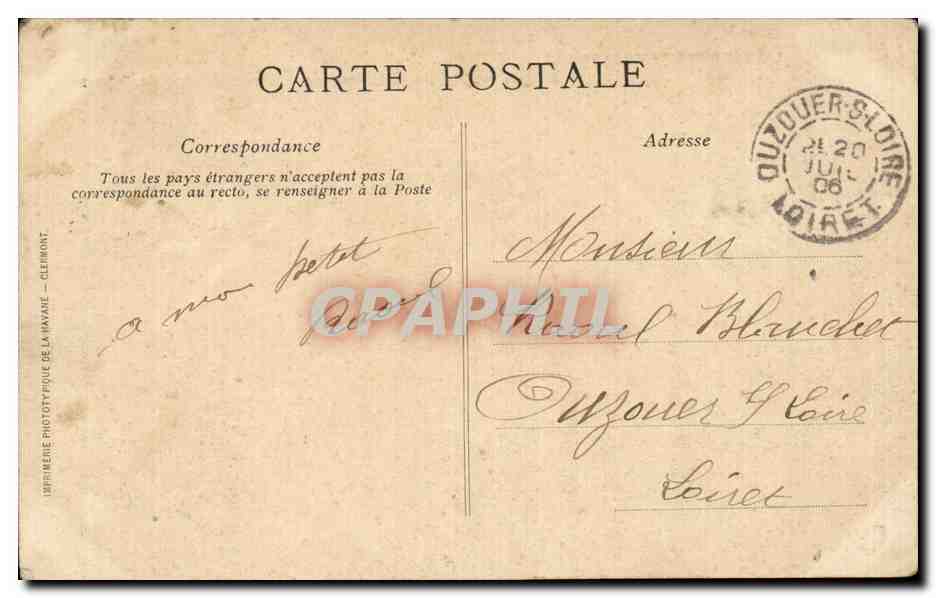 CARTE POSTALE
Correspondance
Tous les pays étrangers n'acceptent pas la
correspondance au recto, se renseigner à la Poste
a mon petit
Raoul
Adresse
Monsieur
Raoul Blanchet
Ouzouer S/ Loire
Loiret
OUZOUER-S-LOIRE
20
JUIL
06
LOIRET
IMPRIMERIE PHOTOTYPIQUE DE LA HAVANE — CLERMONT.
CPAPHIL